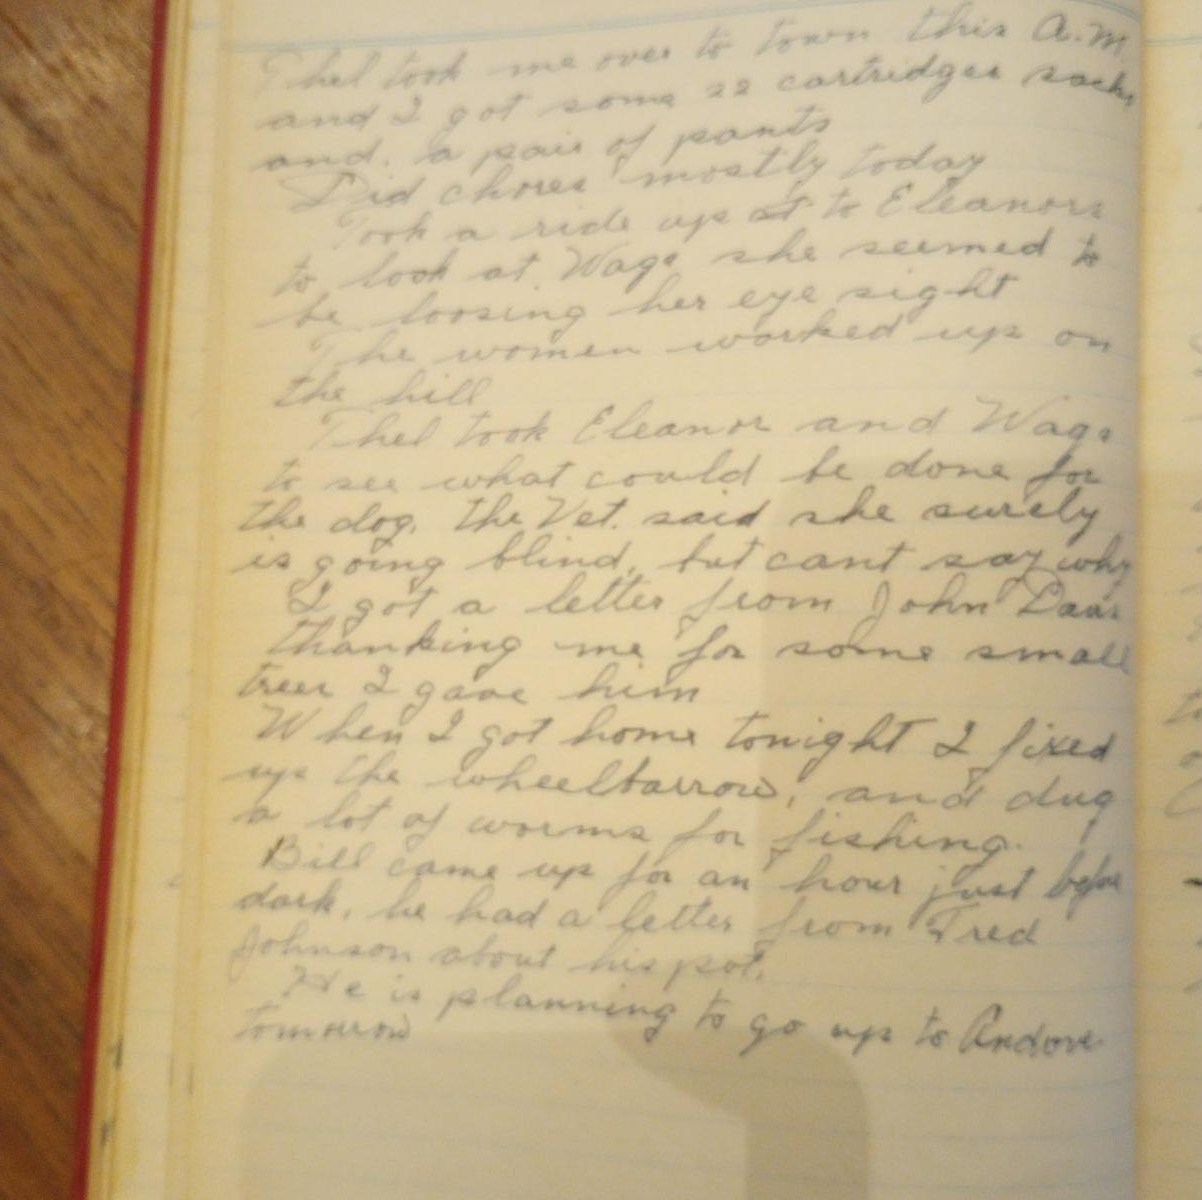 Thel took me over to town this A.M.
and I got some 22 cartridges socks
and. a pair of pants
Did chores mostly today
Took a ride up at to Eleanors
to look at Wags she seemed to
be loosing her eye sight
The women worked up on
the hill
Thel took Eleanor and Wags
to see what could be done for
the dog. the Vet. said she surely
is going blind, but cant say why
I got a letter from John
thanking me for some small
trees I gave him
When I got home tonight I fixed
up the wheelbarrow, and dug
a lot of worms for fishing.
Bill came up for an hour just before
dark, he had a letter from Fred
Johnson about his pot.
He is planning to go up to Andover
tomorrow